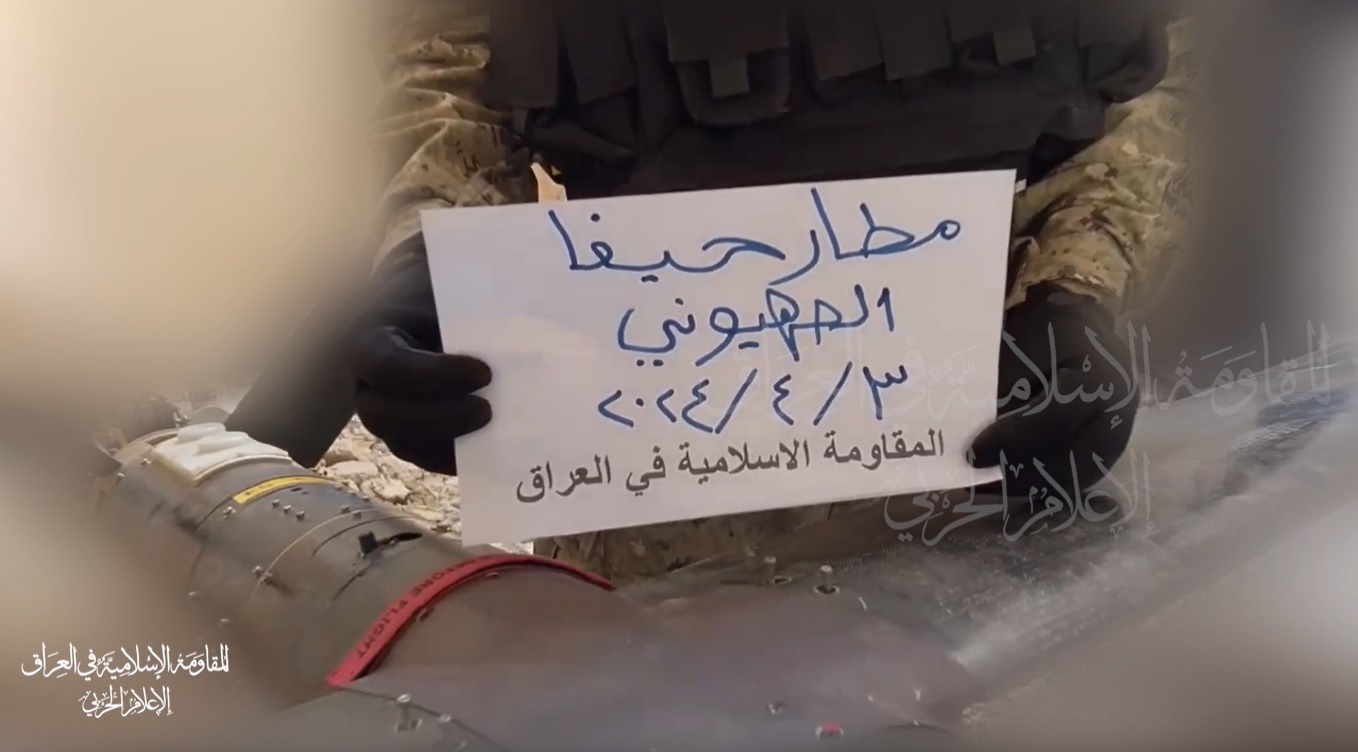 مطار حيفا
الصهيوني
٢٠٢٤/٤/٣
المقاومة الاسلامية في العراق
المقاومة الإسلامية في العراق
الإعلام الحربي
BEFORE FLIGHT
المقاومة الإسلامية في العراق
الإعلام الحربي